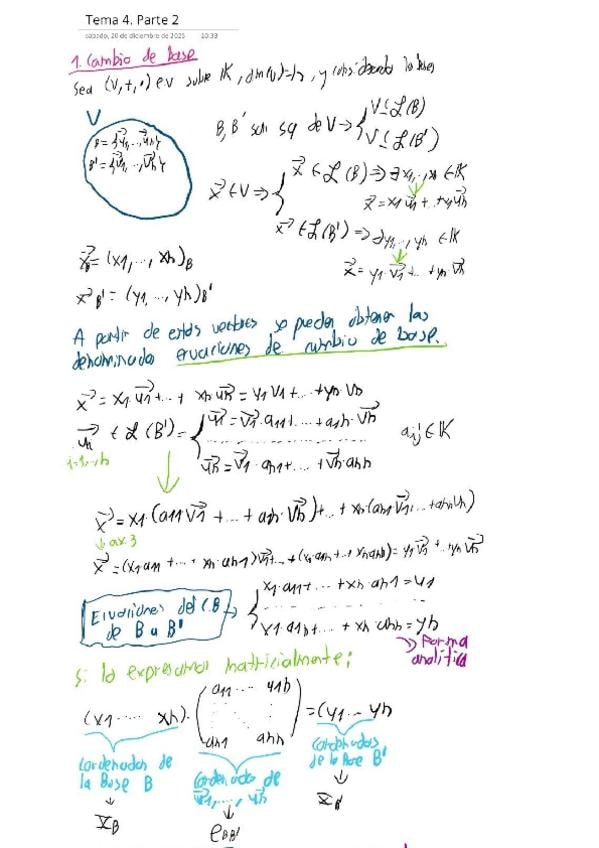 Tema 4. Parte 2
sábado, 20 de diciembre de 2025 20:33
1. Cambio de base
Sea (V,+,·) e.v sobre K, dim(V)=n, y considerando las bases
V
B={u⃗1,...,u⃗n}
B'={v⃗1,...,v⃗n}
B, B' son sg de V → { V ≤ L(B)
V ≤ L(B')
x⃗ ∈ V ⇒ { x⃗ ∈ L(B) ⇒ ∃ x1,...,xn ∈ K
x⃗ = x1 u⃗1 + ... + xn u⃗n
x⃗ ∈ L(B') ⇒ ∃ y1,...,yn ∈ K
x⃗ = y1·v⃗1 + ... + yn v⃗n
x⃗B = (x1,...,xn)B
x⃗B' = (y1,...,yn)B'
A partir de estos vectores se pueden obtener las
denominadas ecuaciones de cambio de base.
x⃗ = x1·u⃗1 + ... + xn·u⃗n = y1 v1 + ... + yn vn
u⃗i ∈ L(B') = { u⃗1 = v⃗1·a11 + ... + a1n·v⃗n
aij ∈ K
i=1,..,n
u⃗n = v⃗1·an1 + ... + v⃗n·ann
x⃗ = x1·(a11 v⃗1 + ... + a1n·v⃗n) + ... + xn(an1 v⃗1 ... + ann vn)
ax 3
x⃗ = (x1 a11 + ... + xn·an1) v⃗1 + ... + (x1 a1n + ... + xn ann) = y1 v⃗1 + ... yn v⃗n
Ecuaciones del C.B
de B a B'
→ { x1·a11 + ... + xn·an1 = y1
x1·a1n + ... + xn·ann = yn
Forma
analítica
Si lo expresamos matricialmente:
(x1 ..... xn) · ( a11 ... a1n
an1 ann ) = (y1 ... yn
Coordenadas de
la Base B
Coordenadas de
u⃗1, ..., u⃗n
Coordenadas
de la Base B'
XB
PBB'
XB'